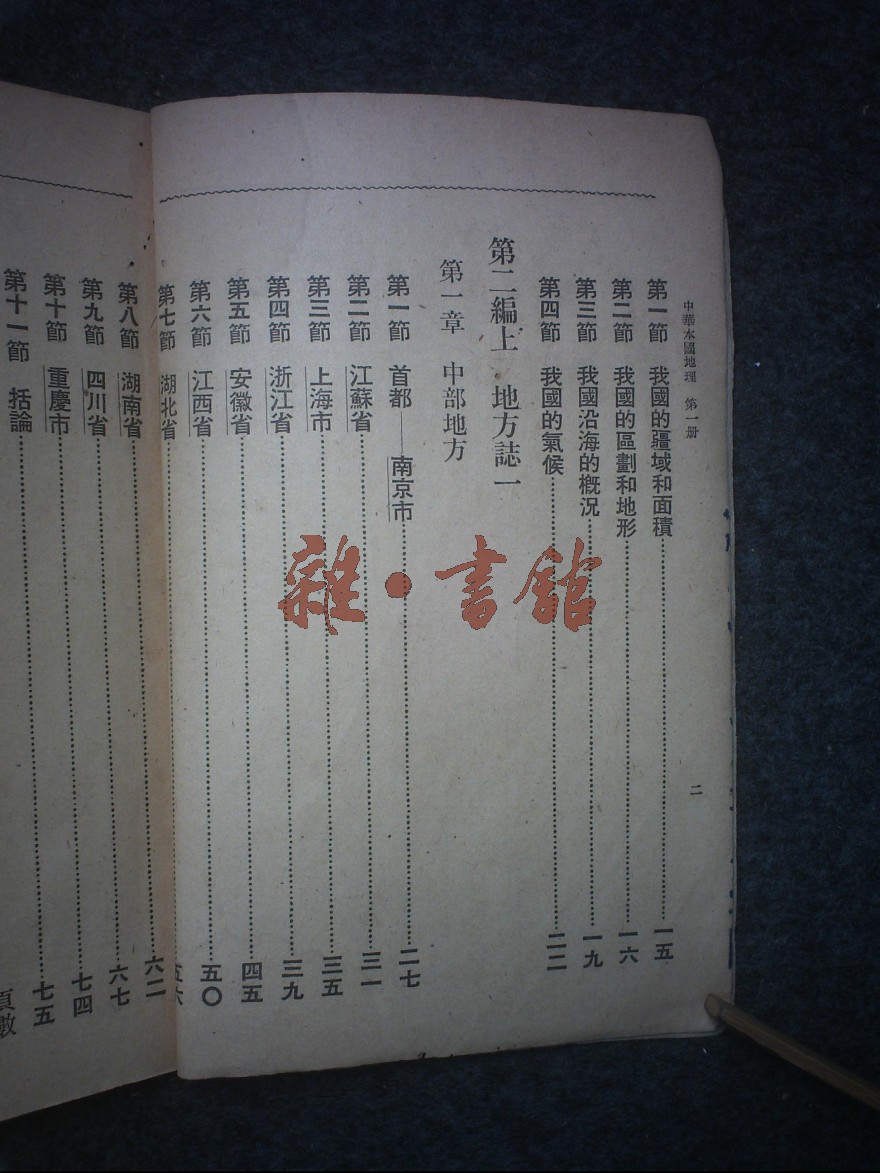 中華本國地理　第一册
二
第一節　我國的疆域和面積……一五
第二節　我國的區劃和地形……一六
第三節　我國沿海的概況……一九
第四節　我國的氣候……二二
第二編上　地方誌一
第一章　中部地方
第一節　首都——南京市……二七
第二節　江蘇省……三一
第三節　上海市……三五
第四節　浙江省……三九
第五節　安徽省……四五
第六節　江西省……五〇
第七節　湖北省……五六
第八節　湖南省……六二
第九節　四川省……六七
第十節　重慶市……七四
第十一節　括論……七五
頁數
雜·書館